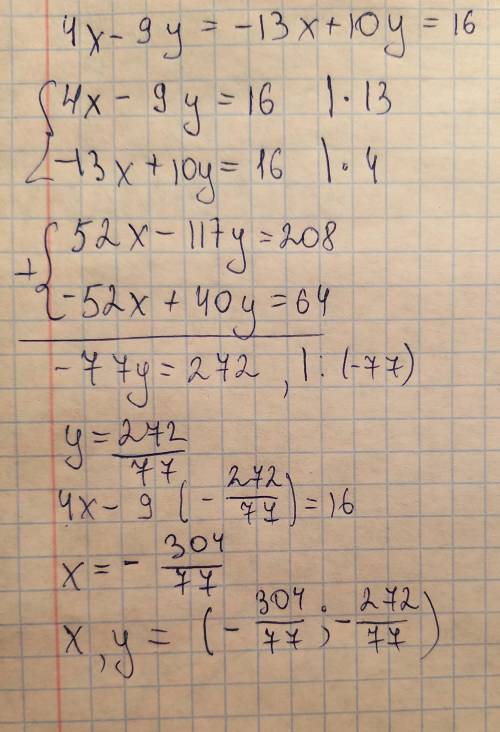 4x - 9y = -13x + 10y = 16
4x - 9y = 16 | · 13
-13x + 10y = 16 | · 4
52x - 117y = 208
+
-52x + 40y = 64
-77y = 272, | : (-77)
y = 272/77
4x - 9 (- 272/77) = 16
x = - 304/77
x, y = (- 304/77; - 272/77)